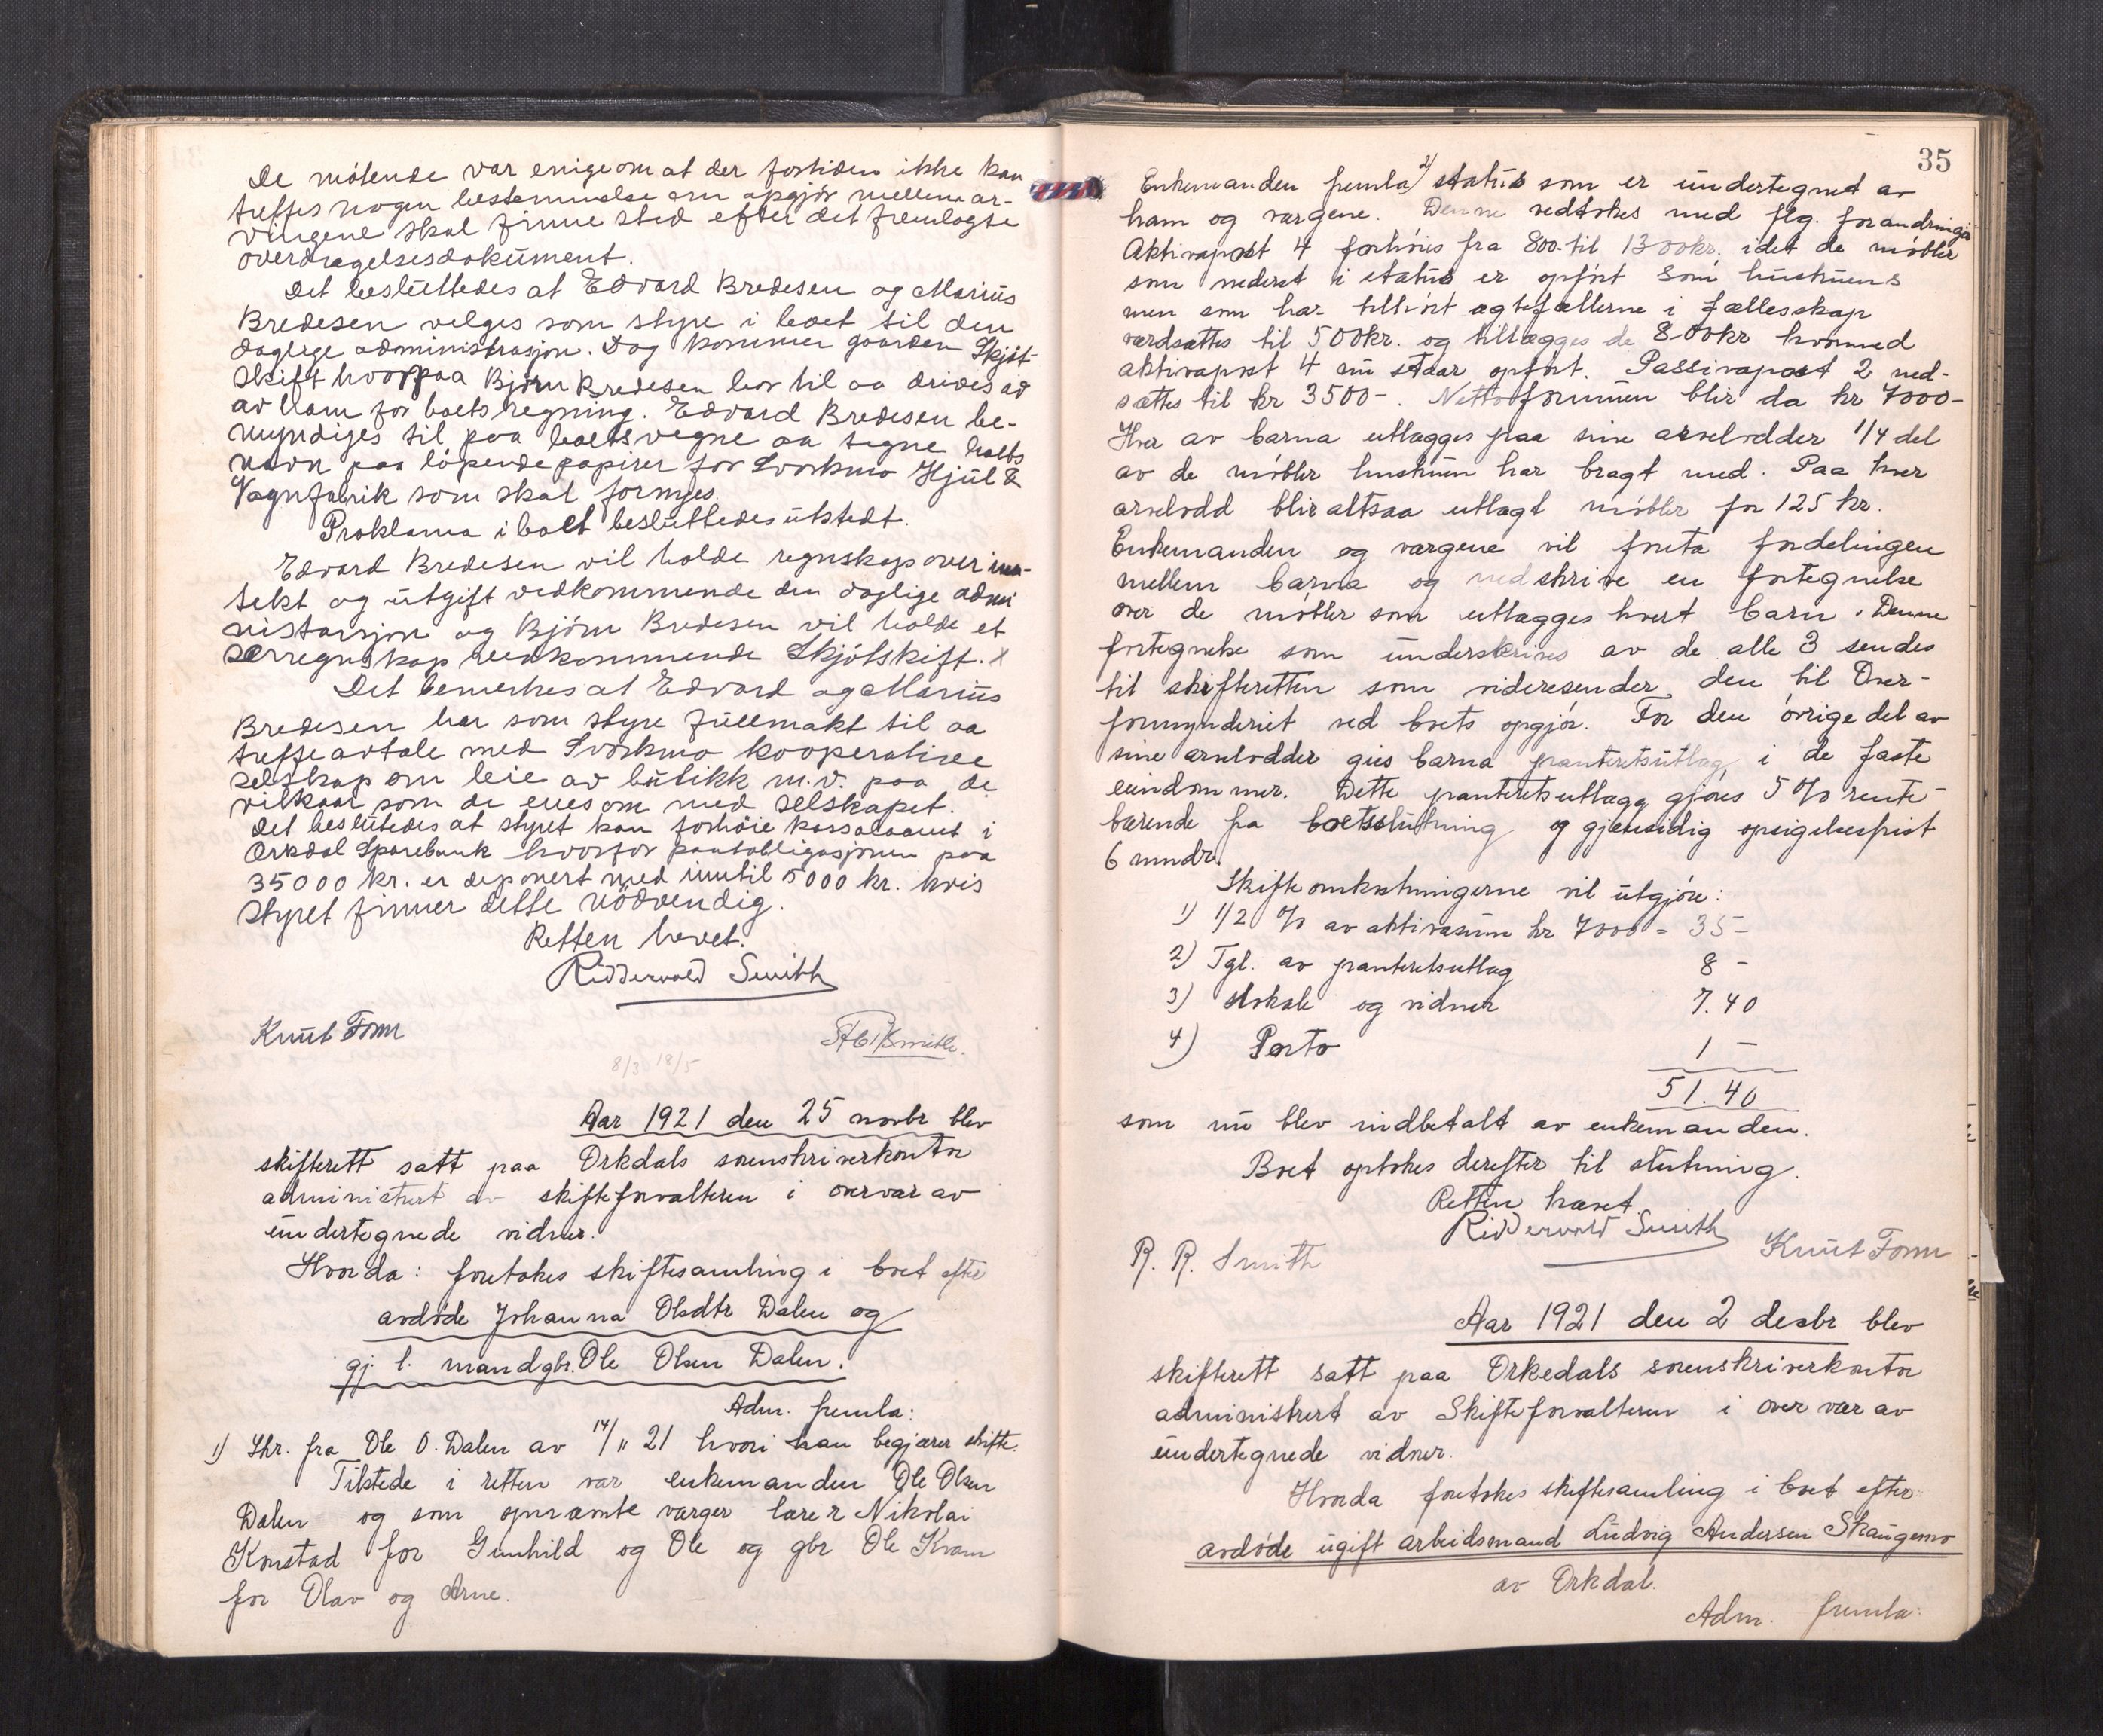 De møtende var enige om at der fortiden ikke kan
treffes nogen bestemmelse om opgjør mellem ar-
vingene skal finne sted efter det fremlagte
overdragelsesdokument.
Det besluttedes at Edvard Bredesen og Marius
Bredesen velges som styre i boet til den
daglige administrasjon. Dog kommer gaarden Skjøt-
skift hvorpaa Bjørn Bredesen bor til aa drives
av ham for boets regning. Edvard Bredesen be-
myndiges til paa boets vegne aa tegne boets
navn paa løpende papirer for Svorkmo Hjul &
Vognfabrik som skal fornyes.
Proklama i boet besluttedes utstedt.
Edvard Bredesen vil holde regnskap over inn-
tekt og utgift vedkommende den daglige admi
nistrasjon og Bjørn Bredesen vil holde et
særregnskap vedkommende Skjøtskift.
Det bemerkes at Edvard og Marius
Bredesen har som styre fullmakt til aa
treffe avtale med Svorkmo kooperative
selskap om leie av butikk m.v. paa de
vilkaar som de enes om med selskapet.
Det besluttedes at styret kan forhøie kassalaanet i
Orkdal Sparebank hvorfor pantobligasjonen paa
35000 kr. er deponert med inntil 5000 kr. hvis
styret finner dette nødvendig.
Retten hevet.
Ridderwold Smith
Knut Forn
Smith.
8/3 18/5
Aar 1921 den 25 novbr blev
skifterett satt paa Orkdals sorenskriverkontor
administrert av skifteforvalteren i overvær av
undertegnede vidner.
Hvorda: foretokes skiftesamling i boet efter
avdøde Johanna Olsdtr Dalen og
gj. l. mand gbr. Ole Olsen Dalen.
Adm. fremla:
1) Skr. fra Ole O. Dalen av 14/11 21 hvori han begjærer skifte.
Tilstede i retten var enkemanden Ole Olsen
Dalen og som opnævnte værger lærer Nikolai
Konstad for Gunhild og Ole og gbr Ole Kvam
for Olav og Arne.
35
Enkemanden fremla 2) status som er undertegnet av
ham og værgene. Denne vedtokes med flg. forandringer
Aktivapost 4 forhøies fra 800.- til 1300 kr. idet de møbler
som nederst i status er opført som hustruens
men som har tilhørt ægtefællerne i fællesskap
værdsættes til 500 kr. og tillægges de 800 kr hvormed
aktivapost 4 nu staar opført. Passivapost 2 ned-
sættes til kr 3500-. Nettoformuen blir da kr 7000-
Hver av barna utlægges paa sine arvelodder 1/4 del
av de møbler hustruen har bragt med. Paa hver
arvelodd blir altsaa utlagt møbler for 125 kr.
Enkemanden og værgene vil foreta fordelingen
mellem barna og nedskrive en fortegnelse
over de møbler som utlægges hvert barn. Denne
fortegnelse som underskrives av de alle 3 sendes
til skifteretten som videresender den til Over-
formynderiet ved boets opgjør. For den øvrige del av
sine arvelodder gies barna panteretsutlæg i de faste
eiendommer. Dette panteretsutlægg gjøres 5 % rente-
bærende fra boetsslutning og gjensidig opsigelsesfrist
6 mndr.
Skifteomkostningerne vil utgjøre:
1) 1/2 % av aktivasum kr 7000 = 35-
2) Tgl. av panteretsutlæg 8 -
3) Lokale og vidner 7.40
4) Porto 1 -
51.40
som nu blev indbetalt av enkemanden.
Boet optokes derefter til slutning.
Retten hævet.
Ridderwold Smith
R. R. Smith
Knut Forn
Aar 1921 den 2 decbr blev
skifterett satt paa Orkedals sorenskriverkontor
administrert av Skifteforvalteren i overvær av
undertegnede vidner.
Hvorda foretokes skiftesamling i boet efter
avdøde ugift arbeidsmand Ludvig Andersen Skaugemo
av Orkdal.
Adm. fremla: